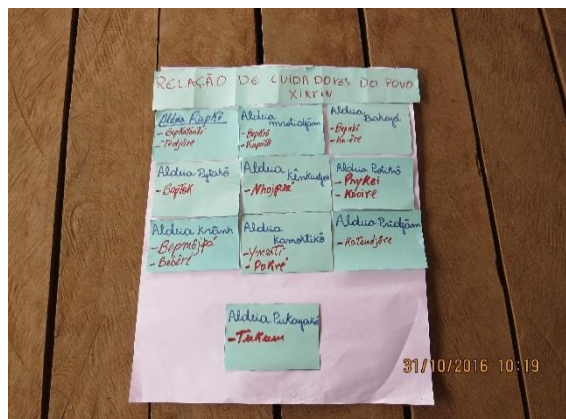 RELAÇÃO DE CUIDADORES DO POVO
XIKRIN
Aldeia Rapkô
- Bepkatenti
- Tedjôre
Aldeia
mrotidjãm
- Bepkrô
- Kupatô
Aldeia Bakajá
- Bepnhô
Aldeia Pytakô
- Beptok
Aldeia
Kenkudjôi
Aldeia Potikrô
- Phykei
- Kôoire
Aldeia Krãnh
- Bepmôjpá
- Bebêre
Aldeia
Kamoktikô
- Pokré
Aldeia Prindjãm
- Katendjôre
Aldeia Pukayakô
- Tukum
31/10/2016 10:19